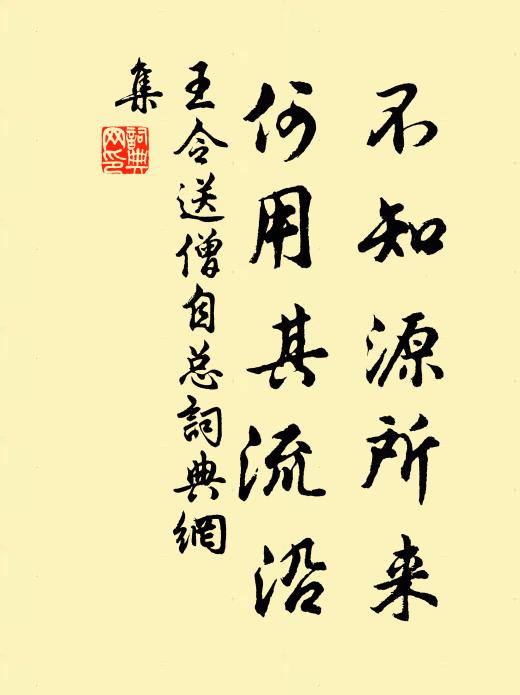 不知源所来
何用其流沿
王令送僧自总詞典網
集
詞典網印